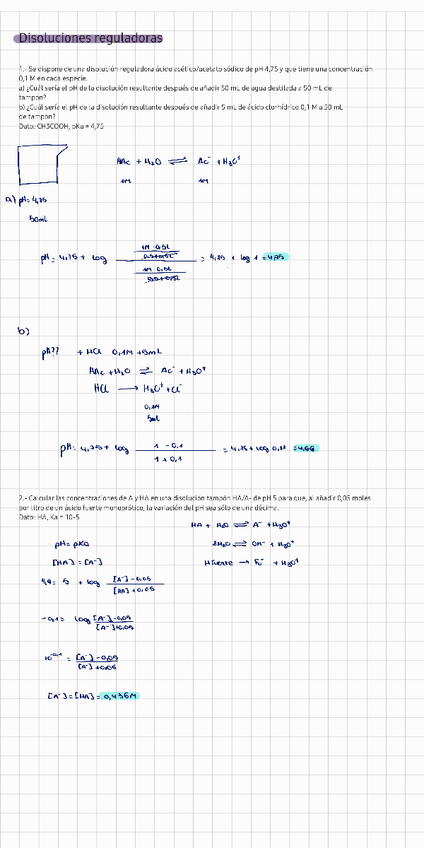 Disoluciones reguladoras
1.- Se dispone de una disolución reguladora ácido acético/acetato sódico de pH 4,75 y que tiene una concentración
0,1 M en cada especie.
a) ¿Cuál sería el pH de la disolución resultante después de añadir 50 mL de agua destilada a 50 mL de
tampón?
b) ¿Cuál sería el pH de la disolución resultante después de añadir 5 mL de ácido clorhídrico 0,1 M a 50 mL
de tampón?
Dato: CH3COOH, pKa = 4,75
HAc + H₂O ⇌ Ac⁻ + H₃O⁺
1M 1M
a) pH= 4,75
50mL
pH = 4,75 + log (1M·0,5L / 0,5+0,5L) / (1M·0,5L / 0,5+0,5L) = 4,75 + log 1 = 4,75
b)
pH?? + HCl 0,1M +5mL
HAc + H₂O ⇌ Ac⁻ + H₃O⁺
HCl → H₃O⁺ + Cl⁻
0,1M
5mL
pH = 4,75 + log (1 - 0,1) / (1 + 0,1) = 4,75 + log 0,82 = 4,66
2.- Calcular las concentraciones de A y HA en una disolución tampón HA/A- de pH 5 para que, al añadir 0,05 moles
por litro de un ácido fuerte monoprótico, la variación del pH sea sólo de una décima.
Dato: HA, Ka = 10-5
HA + H₂O ⇌ A⁻ + H₃O⁺
pH= pKa 2H₂O ⇌ OH⁻ + H₃O⁺
[HA] = [A⁻] Hfuerte → F⁻ + H₃O⁺
4,9 = 5 + log ([A⁻] - 0,05) / ([HA] + 0,05)
-0,1 = log ([A⁻] - 0,05) / ([A⁻] + 0,05)
10⁻⁰'¹ = ([A⁻] - 0,05) / ([A⁻] + 0,05)
[A⁻] = [HA] = 0,436M